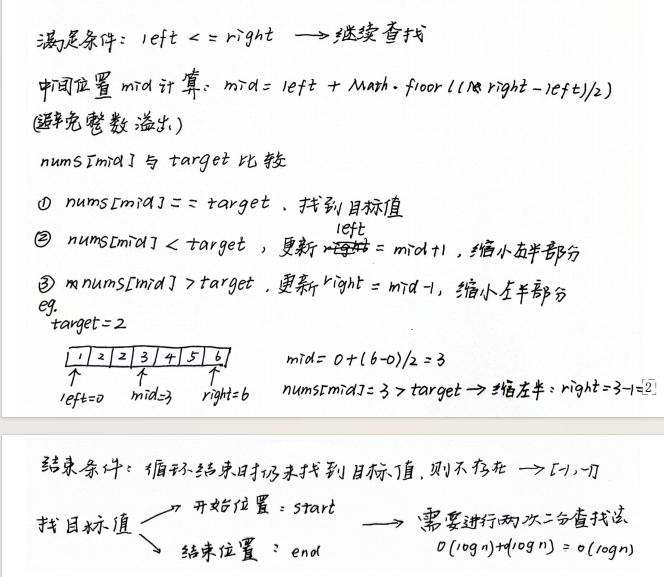 满足条件: left <= right → 继续查找
中间位置 mid 计算: mid = left + Math.floor((right-left)/2)
(避免整数溢出)
nums[mid] 与 target 比较
① nums[mid] == target, 找到目标值
left
② nums[mid] < target, 更新 right = mid+1, 缩小右半部分
③ nums[mid] > target, 更新 right = mid-1, 缩小左半部分
eg.
target=2
1 2 2 3 4 5 6
mid= 0+(6-0)/2 = 3
left=0 mid=3 right=6
nums[mid]=3 > target → 缩左半: right=3-1=2
结束条件: 循环结束时仍未找到目标值, 则不存在 → [-1,-1]
开始位置: start
找目标值 → 需要进行两次二分查找法
结束位置: end
O(logn)+O(logn) = O(logn)